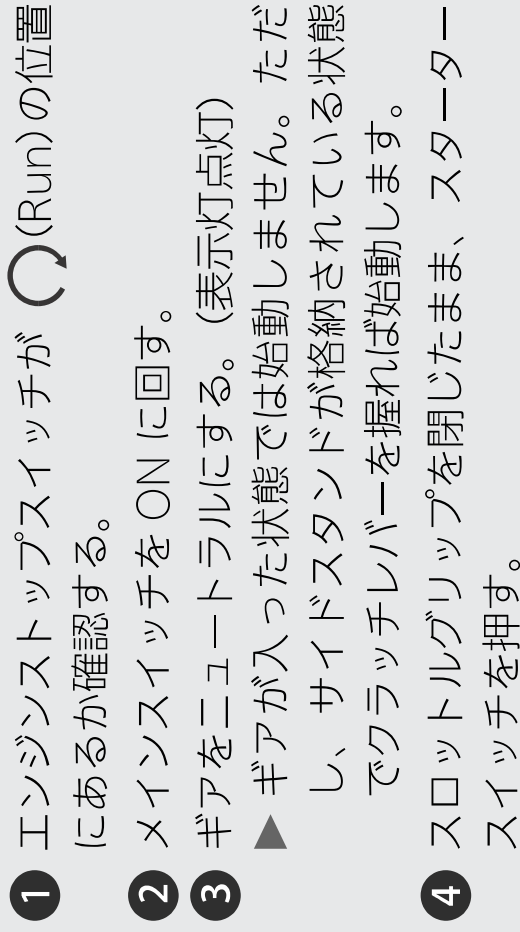 ❶ エンジンストップスイッチが (Run)の位置
にあるか確認する。
❷ メインスイッチを ON に回す。
❸ ギアをニュートラルにする。(表示灯点灯)
▶ ギアが入った状態では始動しません。ただ
し、サイドスタンドが格納されている状態
でクラッチレバーを握れば始動します。
❹ スロットルグリップを閉じたまま、スターター
スイッチを押す。